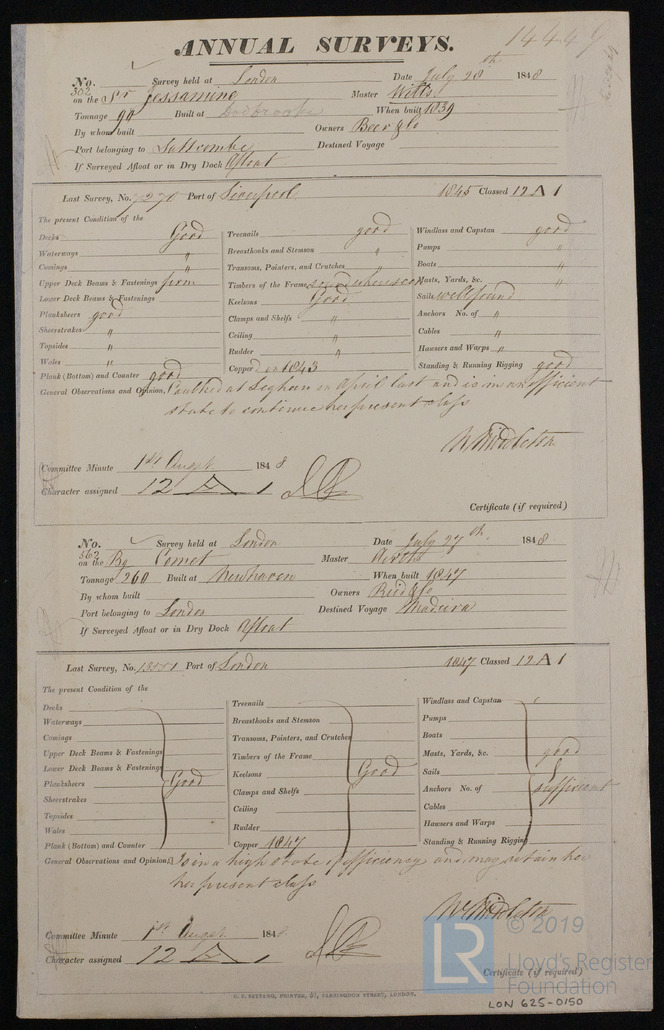 14449
ANNUAL SURVEYS.
No. 302 Survey held at London Date July 28th 1848
on the Sr Jessamine Master Witts
Tonnage 90 Built at When built 1839
By whom built Owners Beer & Co
Port belonging to Saltcombe Destined Voyage
If Surveyed Afloat or in Dry Dock Afloat
Last Survey, No. 7270 Port of Liverpool 1845 Classed 12 A 1
The present Condition of the
Decks Good Treenails good Windlass and Capstan good
Waterways " Breasthooks and Stemson " Pumps "
Comings " Transoms, Pointers, and Crutches " Boats "
Upper Deck Beams & Fastenings firm Timbers of the Frame Masts, Yards, &c. "
Lower Deck Beams & Fastenings Keelsons Good Sails well found
Planksheers good Clamps and Shelfs " Anchors No. of "
Sheerstrakes " Ceiling " Cables "
Topsides " Rudder " Hawsers and Warps "
Wales " Copperd in 1843 Standing & Running Rigging good
Plank (Bottom) and Counter good
General Observations and Opinion, Caulked at Leghorn in April last and is in an efficient
state to continue her present class
W Middleton
Committee Minute 1st Augst 1848
Character assigned 12 A 1
Certificate (if required)
No. 562 Survey held at London Date July 27th 1848
on the Bg Comet Master
Tonnage 260 Built at Newhaven When built 1847
By whom built Owners Reid & Co
Port belonging to London Destined Voyage Madeira
If Surveyed Afloat or in Dry Dock Afloat
Last Survey, No. Port of London 1847 Classed 12 A 1
The present Condition of the
Decks Treenails Windlass and Capstan
Waterways Breasthooks and Stemson Pumps
Comings Transoms, Pointers, and Crutches Boats
Upper Deck Beams & Fastenings Timbers of the Frame Masts, Yards, &c. good
Lower Deck Beams & Fastenings Keelsons Good Sails &
Planksheers Good Clamps and Shelfs Anchors No. of sufficient
Sheerstrakes Ceiling Cables
Topsides Rudder Hawsers and Warps
Wales Copper 1847 Standing & Running Rigging
Plank (Bottom) and Counter
General Observations and Opinion, Is in a high state of efficiency and may retain her
her present class
W Middleton
Committee Minute 1st Augst 1848
Character assigned 12 A 1
Certificate (if required)
C. F. SEYFANG, PRINTER, 57, FARRINGDON STREET, LONDON.
LR © 2019
Lloyd's Register
Foundation
LON 625-0150